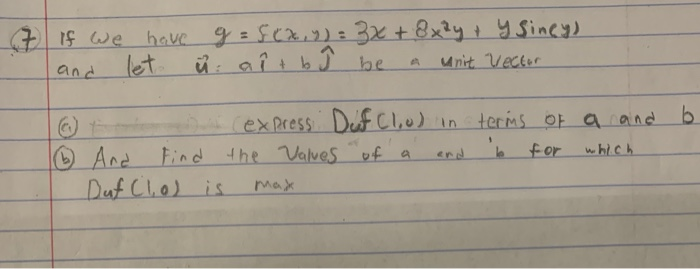 ⑦ If we have g = f(x,y) = 3x + 8x²y + y Sin(y)
and let u⃗ = aî + bĵ be a unit Vector
ⓐ express Duf(1,0) in terms of a and b
ⓑ And Find the Values of a and b for which
Duf(1,0) is max